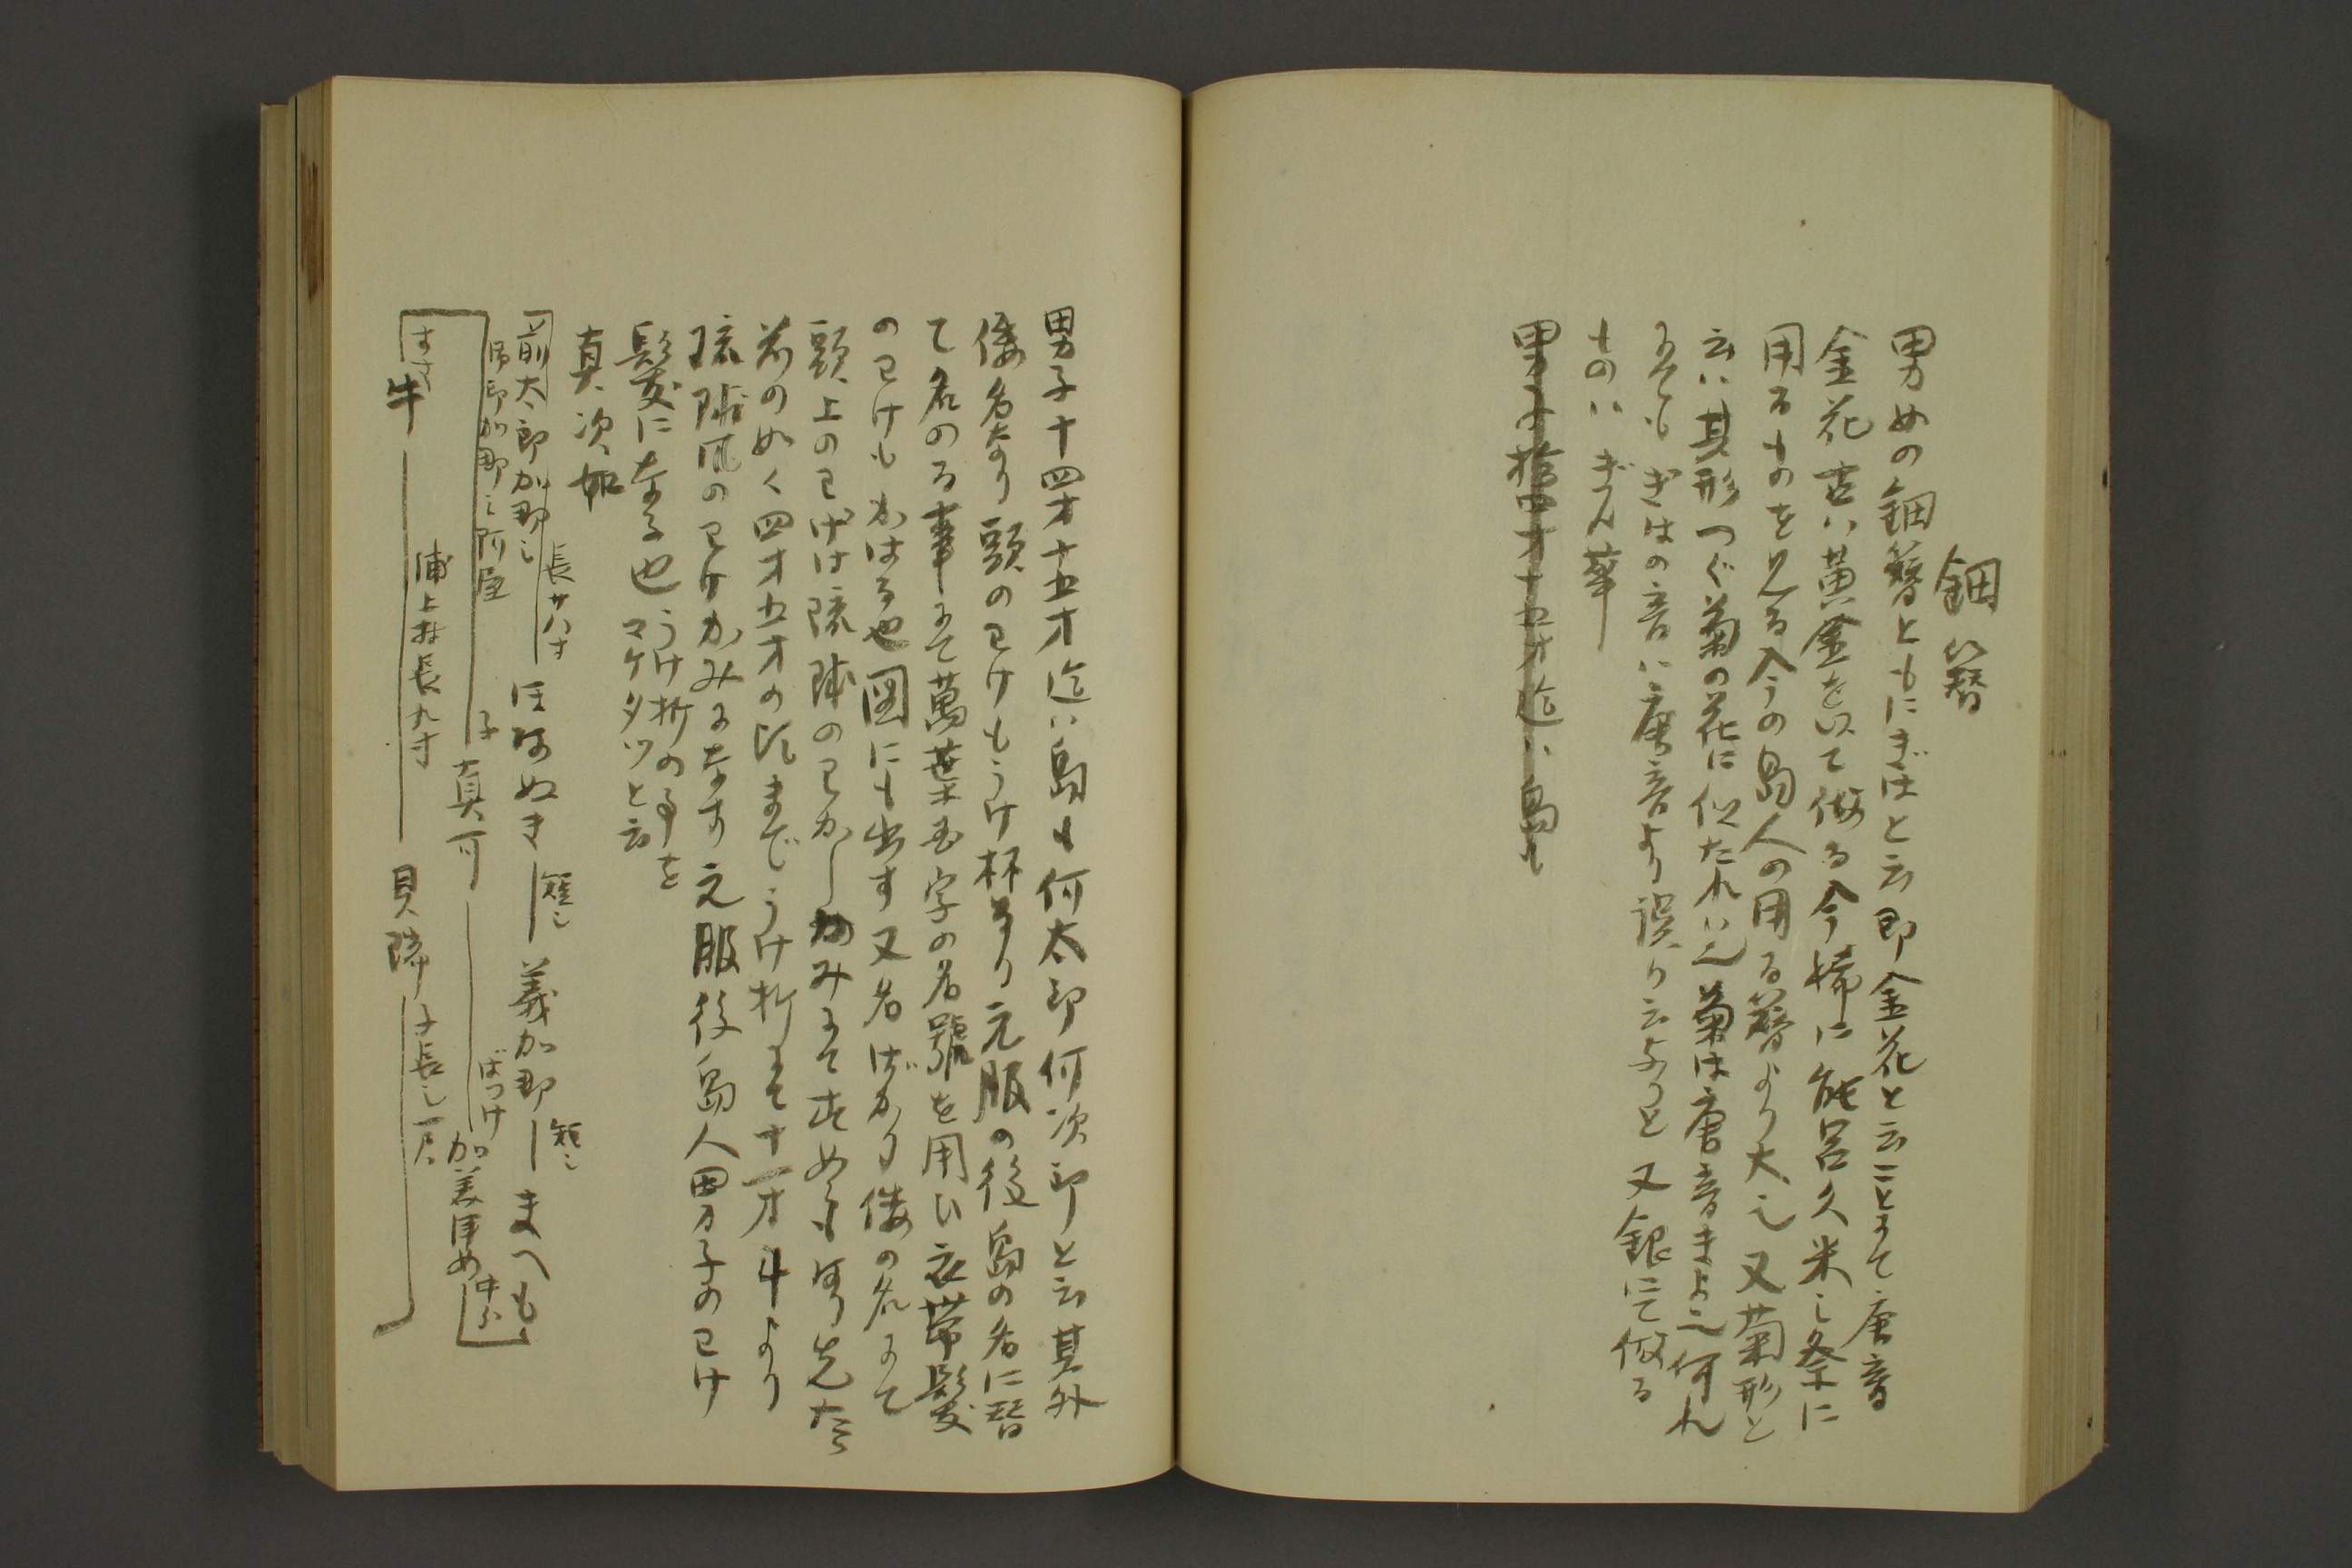 鈿簪
男女の鈿簪ともにぎはと云即金花と云ことにて唐音
金花古ハ黄金を以て做る今稀に能呂久米之祭に
用るものを見る今の島人の用る簪より大也又菊形と
云ハ其形つぐ菊の花に似たれハ也菊は唐音まよ也何れ
にてもぎはの音ハ唐音より誤り云ふと又銀にて做る
ものハぎん華
男子拾四才十五才迄ハ島も
男子十四才十五才迄ハ島も何太郎何次郎と云其外
倭名なり頭のまけもうけ折なり元服の後島の名に替
て名のる事にて萬葉書字の名號を用ひ衣帯髪
のまけもかはる也図にも出す又名ばかり倭の名にて
頭上のまげは琉球のまかしかみにて
前のめく四才五才の頃までうけ折にて十一才斗より
琉球風のまけかみになす元服後島人男子のまけ
髪になる也うけ折の事を
マケタツと云
真次姫
前太郎加那し 長サ八寸 ほなぬき 短し 義加那 短し まへも
加那し阿屋 子 真可 ばつけ 加美 め 中ふ
牛 浦上村長九寸 貝隣 子長し一尺